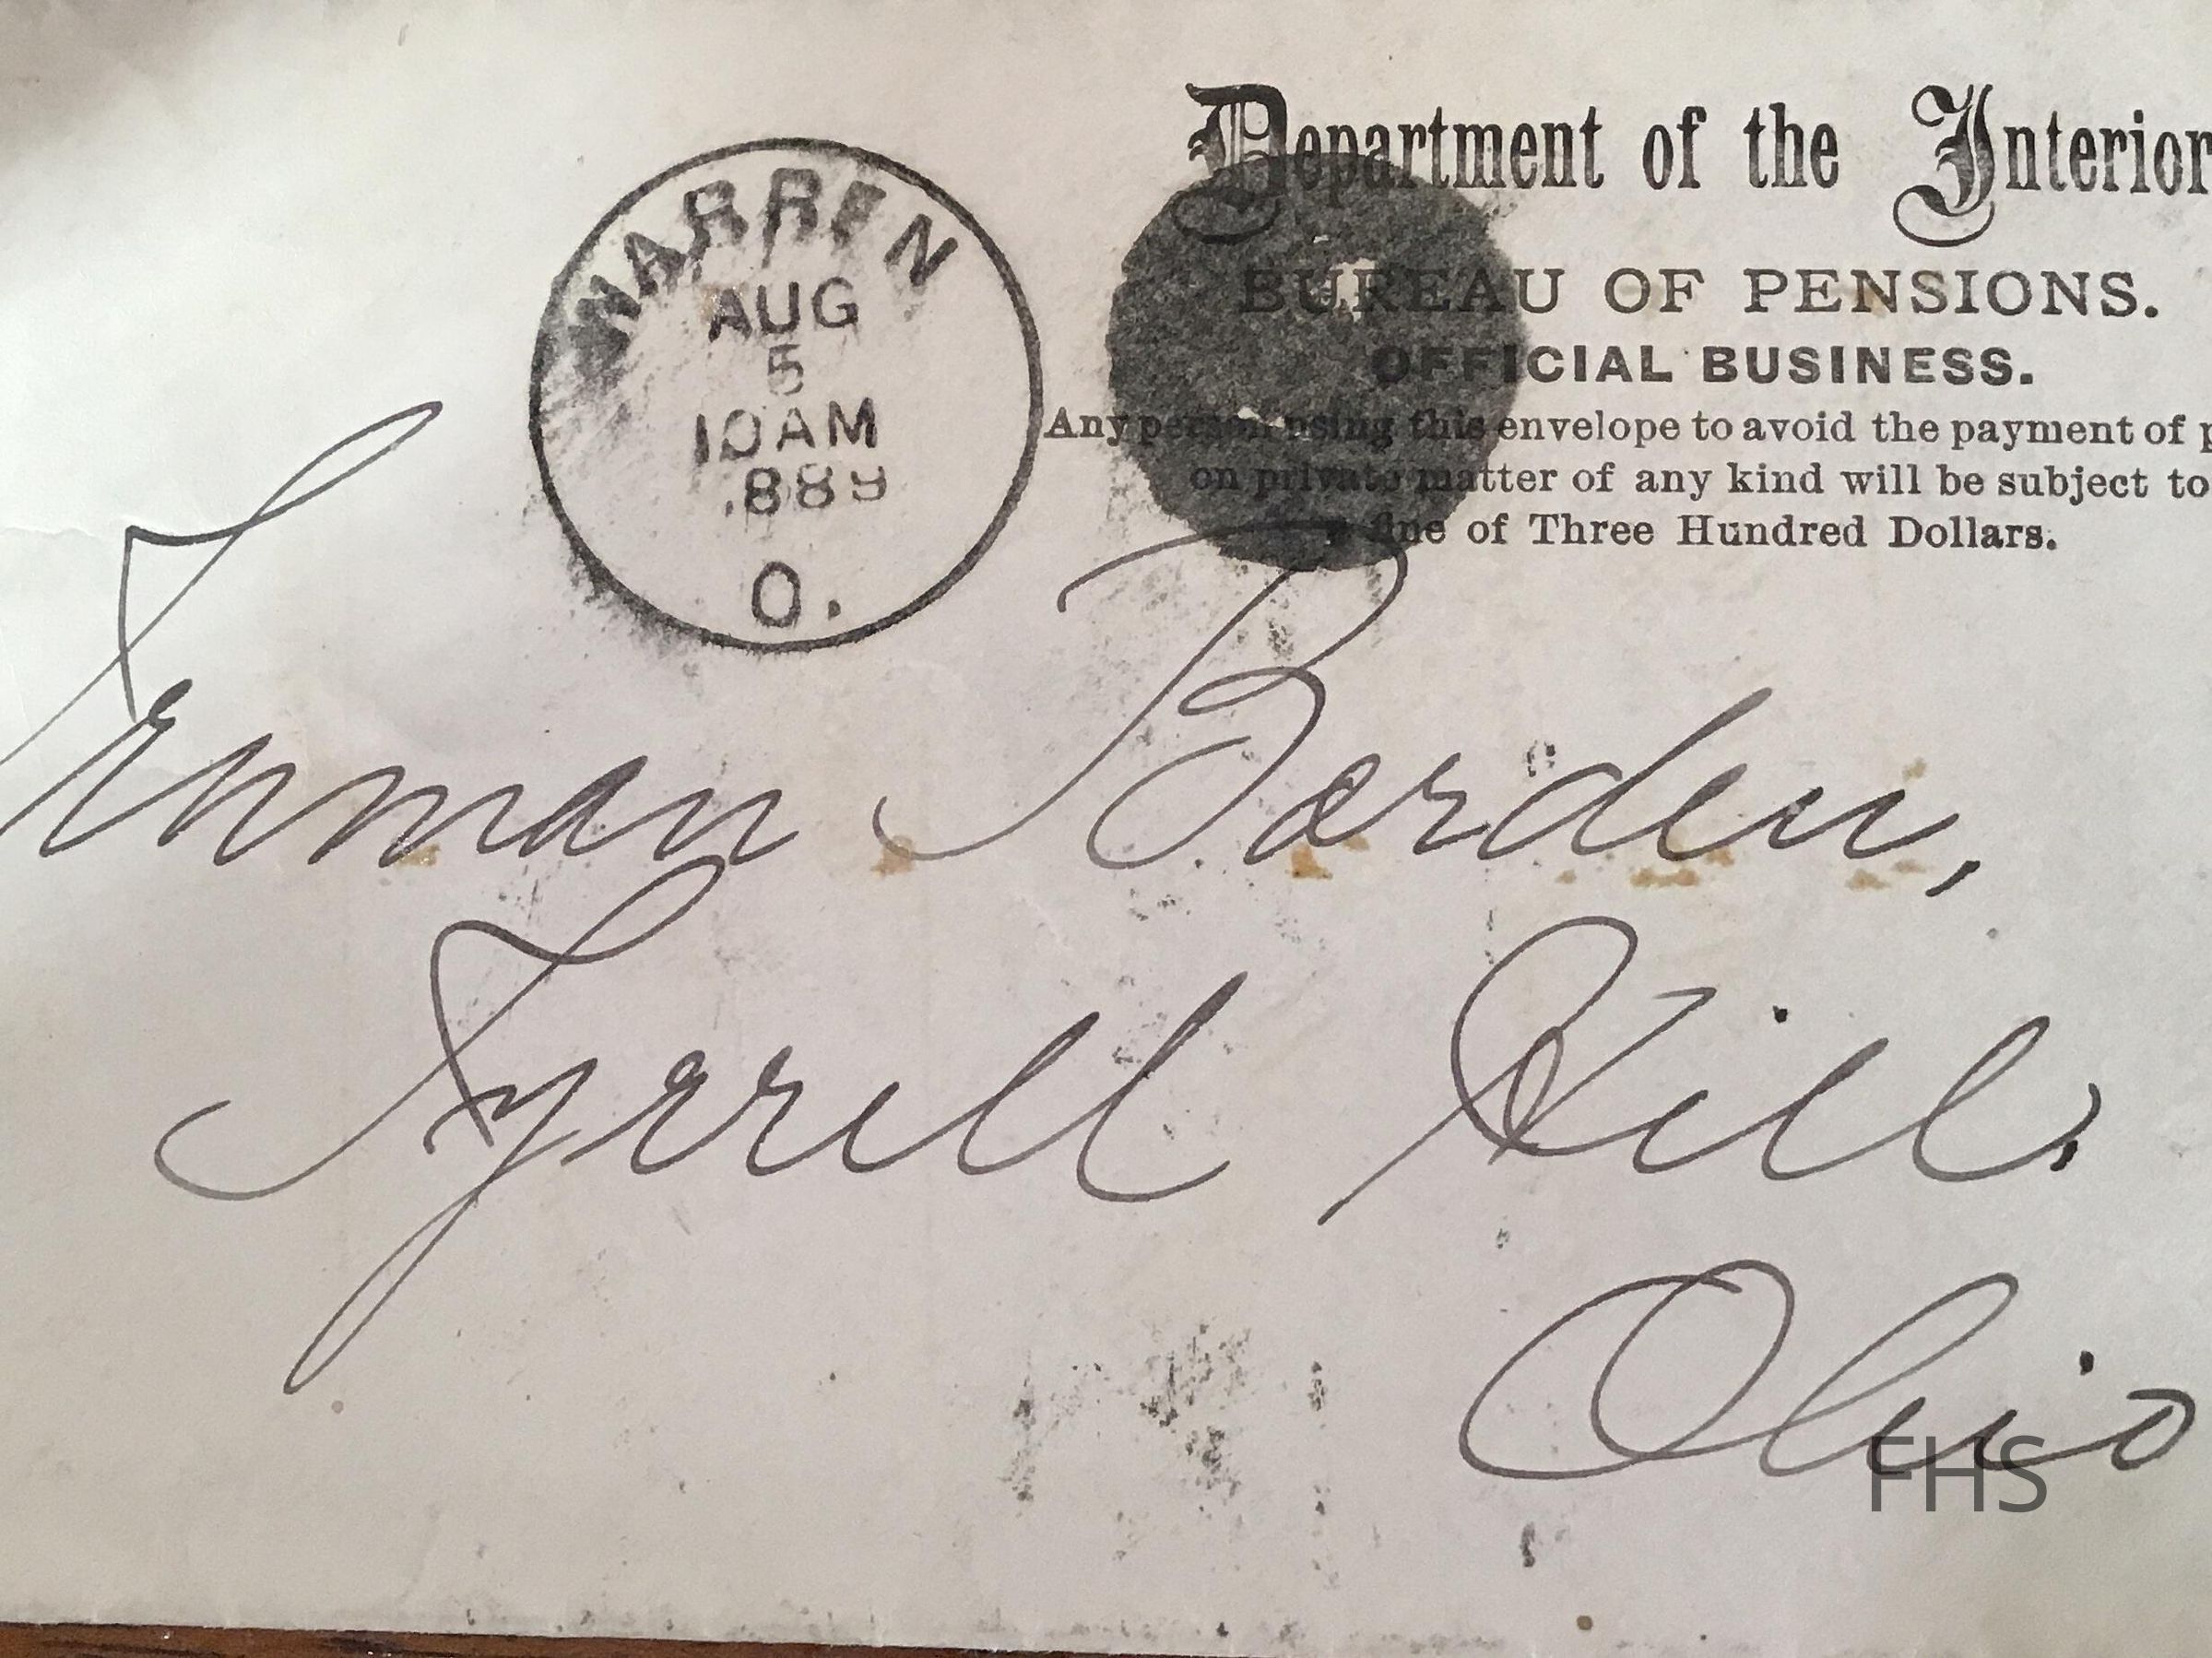 Department of the Interior
BUREAU OF PENSIONS.
OFFICIAL BUSINESS.
Any person using this envelope to avoid the payment of p
on private matter of any kind will be subject to
fine of Three Hundred Dollars.
WARREN
AUG
5
10AM
1889
O.
Truman Barden,
Tyrrell Hill,
Ohio
FHS